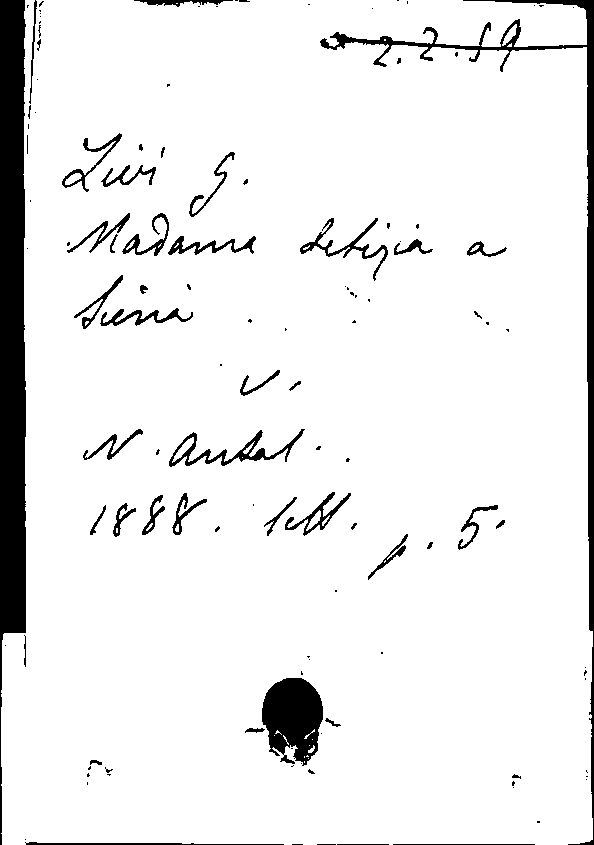 2.2.59
Livi G.
Madama Letizia a
Siena
v.
N. Antol.
1888. sett. p. 5.